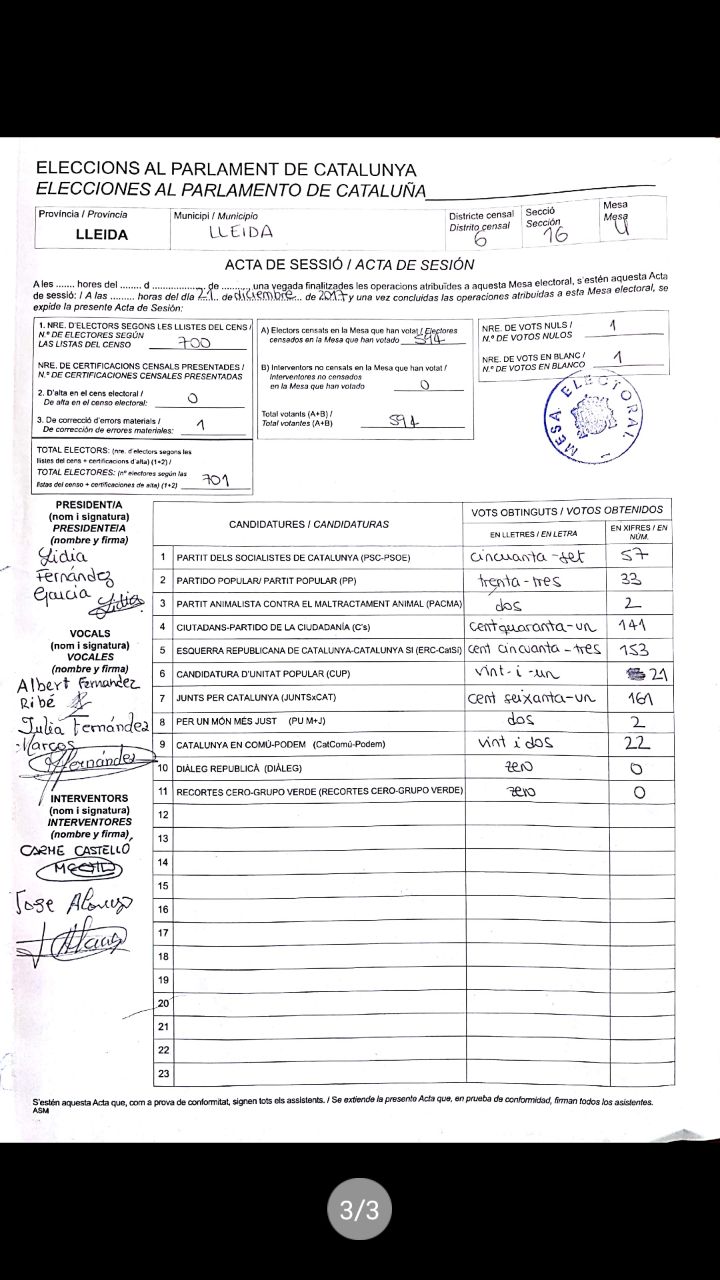 ELECCIONS AL PARLAMENT DE CATALUNYA
ELECCIONES AL PARLAMENTO DE CATALUÑA
Província / Provincia
LLEIDA
Municipi / Municipio
LLEIDA
Districte censal
Distrito censal
6
Secció
Sección
16
Mesa
Mesa
U
ACTA DE SESSIÓ / ACTA DE SESIÓN
A les ....... hores del ....... d .................. de .......... una vegada finalitzades les operacions atribuïdes a aquesta Mesa electoral, s'estén aquesta Acta
de sessió: / A las ......... horas del día 21 de diciembre de 2017 y una vez concluidas las operaciones atribuidas a esta Mesa electoral, se
expide la presente Acta de Sesión:
1. NRE. D'ELECTORS SEGONS LES LLISTES DEL CENS /
N.º DE ELECTORES SEGÚN
LAS LISTAS DEL CENSO 700
NRE. DE CERTIFICACIONS CENSALS PRESENTADES /
N.º DE CERTIFICACIONES CENSALES PRESENTADAS
2. D'alta en el cens electoral /
De alta en el censo electoral: 0
3. De correcció d'errors materials /
De corrección de errores materiales: 1
TOTAL ELECTORS: (nre. d'electors segons les
llistes del cens + certificacions d'alta) (1+2) /
TOTAL ELECTORES: (nº electores según las
listas del censo + certificaciones de alta) (1+2) 701
A) Electors censats en la Mesa que han votat / Electores
censados en la Mesa que han votado 594
B) Interventors no censats en la Mesa que han votat /
Interventores no censados
en la Mesa que han votado 0
Total votants (A+B) /
Total votantes (A+B) 594
NRE. DE VOTS NULS /
N.º DE VOTOS NULOS 1
NRE. DE VOTS EN BLANC /
N.º DE VOTOS EN BLANCO 1
MESA ELECTORAL
PRESIDENT/A
(nom i signatura)
PRESIDENTE/A
(nombre y firma)
Lidia
Fernández
García
Lidia
VOCALS
(nom i signatura)
VOCALES
(nombre y firma)
Albert Fernandez
Ribé
Julia Fernández
Marcos
Fernández
INTERVENTORS
(nom i signatura)
INTERVENTORES
(nombre y firma)
CARME CASTELLÓ
Jose Alonso
CANDIDATURES / CANDIDATURAS
VOTS OBTINGUTS / VOTOS OBTENIDOS
EN LLETRES / EN LETRA
EN XIFRES / EN NÚM.
1 PARTIT DELS SOCIALISTES DE CATALUNYA (PSC-PSOE) cincuanta-set 57
2 PARTIDO POPULAR/ PARTIT POPULAR (PP) trenta-tres 33
3 PARTIT ANIMALISTA CONTRA EL MALTRACTAMENT ANIMAL (PACMA) dos 2
4 CIUTADANS-PARTIDO DE LA CIUDADANÍA (C's) cent quaranta-un 141
5 ESQUERRA REPUBLICANA DE CATALUNYA-CATALUNYA SÍ (ERC-CatSí) cent cincuanta-tres 153
6 CANDIDATURA D'UNITAT POPULAR (CUP) vint-i-un 21
7 JUNTS PER CATALUNYA (JUNTSxCAT) cent seixanta-un 161
8 PER UN MÓN MÉS JUST (PU M+J) dos 2
9 CATALUNYA EN COMÚ-PODEM (CatComú-Podem) vint i dos 22
10 DIÀLEG REPUBLICÀ (DIÀLEG) zero 0
11 RECORTES CERO-GRUPO VERDE (RECORTES CERO-GRUPO VERDE) zero 0
12
13
14
15
16
17
18
19
20
21
22
23
S'estén aquesta Acta que, com a prova de conformitat, signen tots els assistents. / Se extiende la presente Acta que, en prueba de conformidad, firman todos los asistentes.
ASM
3/3